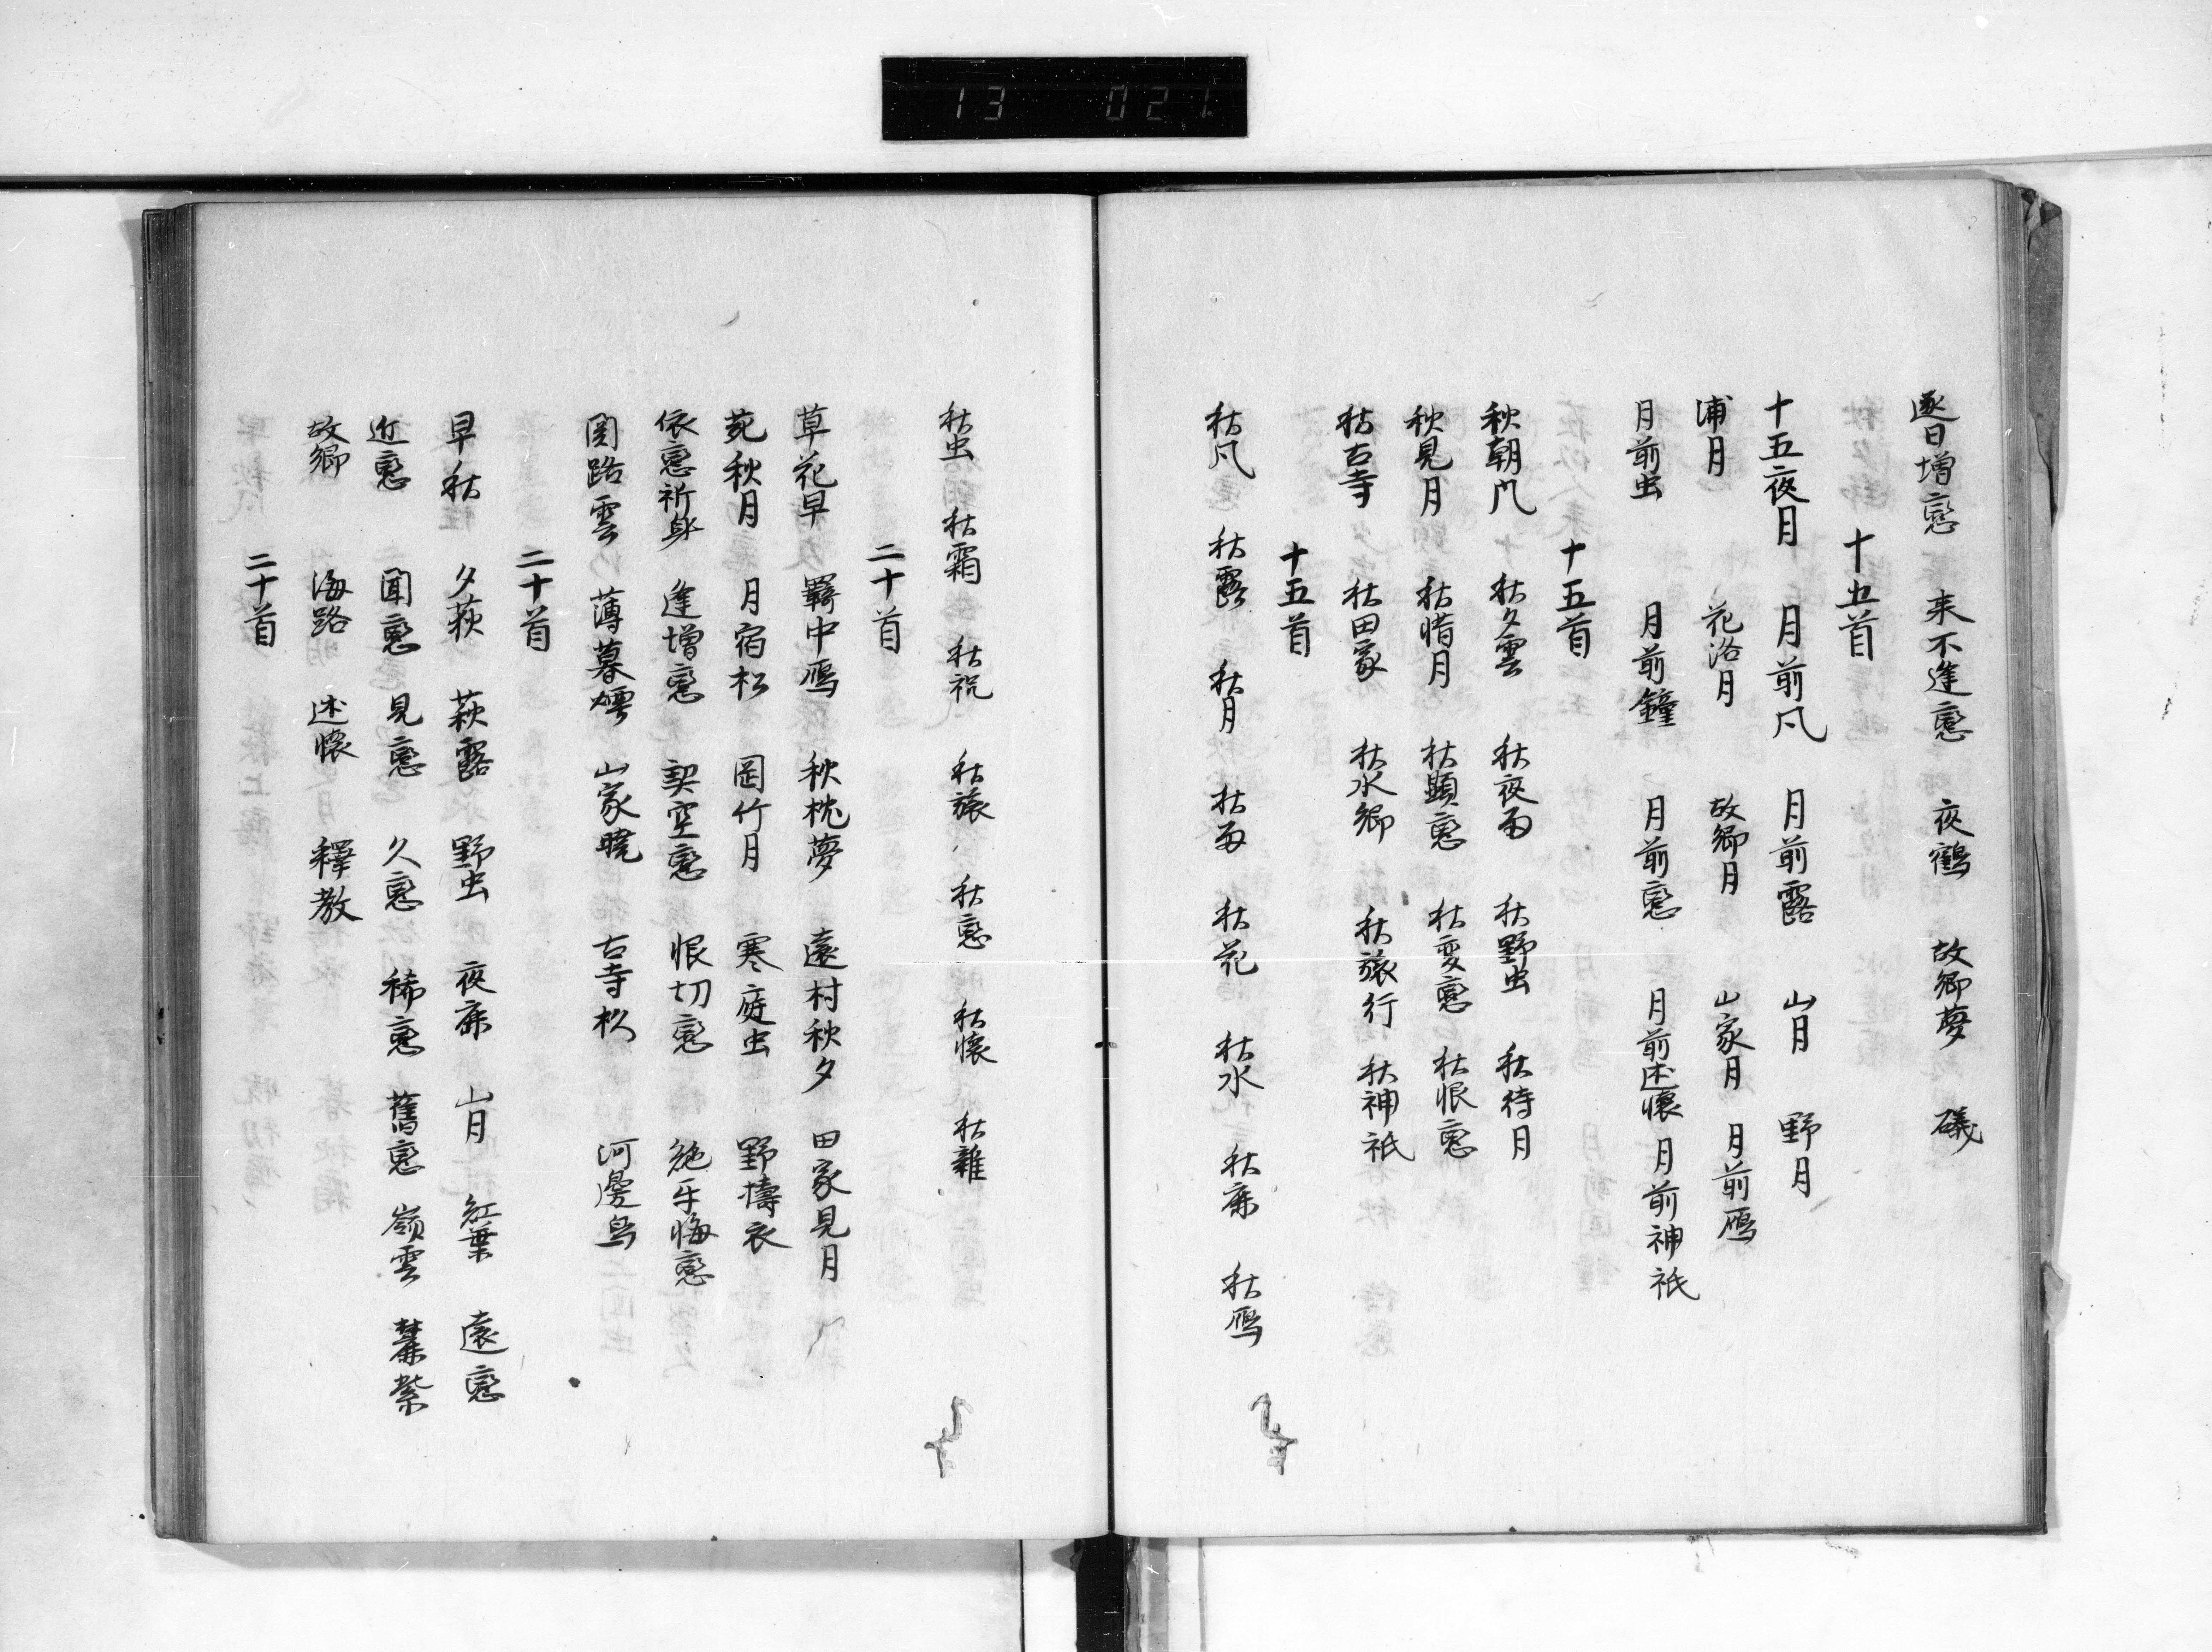 13 021
逐日増戀 来不逢戀 夜鶴 故郷夢 礒
十五首
十五夜月 月前風 月前露 山月 野月
浦月 花洛月 故郷月 山家月 月前鴈
月前虫 月前鐘 月前戀 月前述懐 月前神祇
十五首
秋朝風 秋夕雲 秋夜雨 秋野虫 秋待月
秋見月 秋惜月 秋顕戀 秋変戀 秋恨戀
秋古寺 秋田家 秋水郷 秋旅行 秋神祇
十五首
秋風 秋露 秋月 秋雨 秋花 秋水 秋鹿 秋鴈
秋虫 秋霜 秋祝 秋旅 秋戀 秋懐 秋雑
二十首
草花早 羇中鴈 秋枕夢 遠村秋夕 田家見月
菀秋月 月宿松 岡竹月 寒庭虫 野擣衣
依戀祈身 逢増戀 契空戀 恨切戀 絶後悔戀
関路雲 薄暮煙 山家暁 古寺松 河邊鳥
二十首
早秋 夕荻 萩露 野虫 夜鹿 山月 紅葉 遠戀
近戀 聞戀 見戀 久戀 稀戀 舊戀 嶺雲 麓柴
故郷 海路 述懐 釋教
二十首